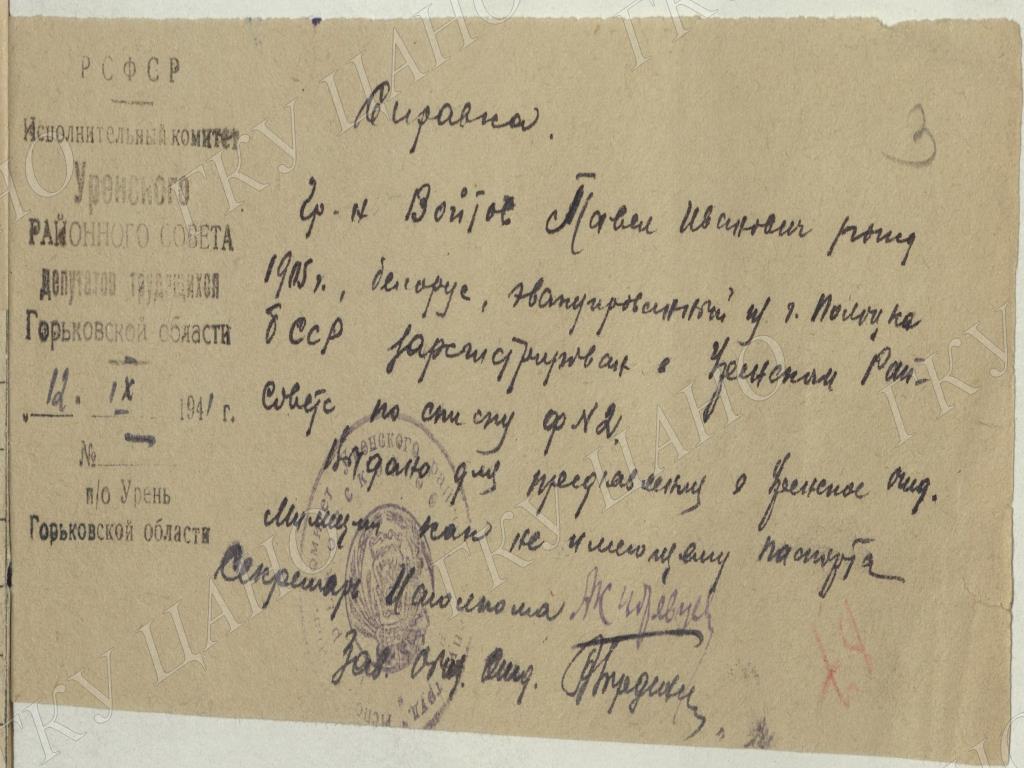 РСФСР
Исполнительный комитет
Уренского
РАЙОННОГО СОВЕТА
депутатов трудящихся
Горьковской области
"12. IX 1941 г.
№
п/о Урень
Горьковской области
3
Справка.
Гр-н Войтов Павел Иванович рожд
1915г., белорус, эвакуированный из г. Полоцка
БССР зарегистрирован в Уренском Рай-
совете по списку ф N2.
Выдано для представления в Уренское отд.
Милиции как не имеющему паспорта
Секретарь Исполкома
Зав. отд.
ГКУ ЦАНО